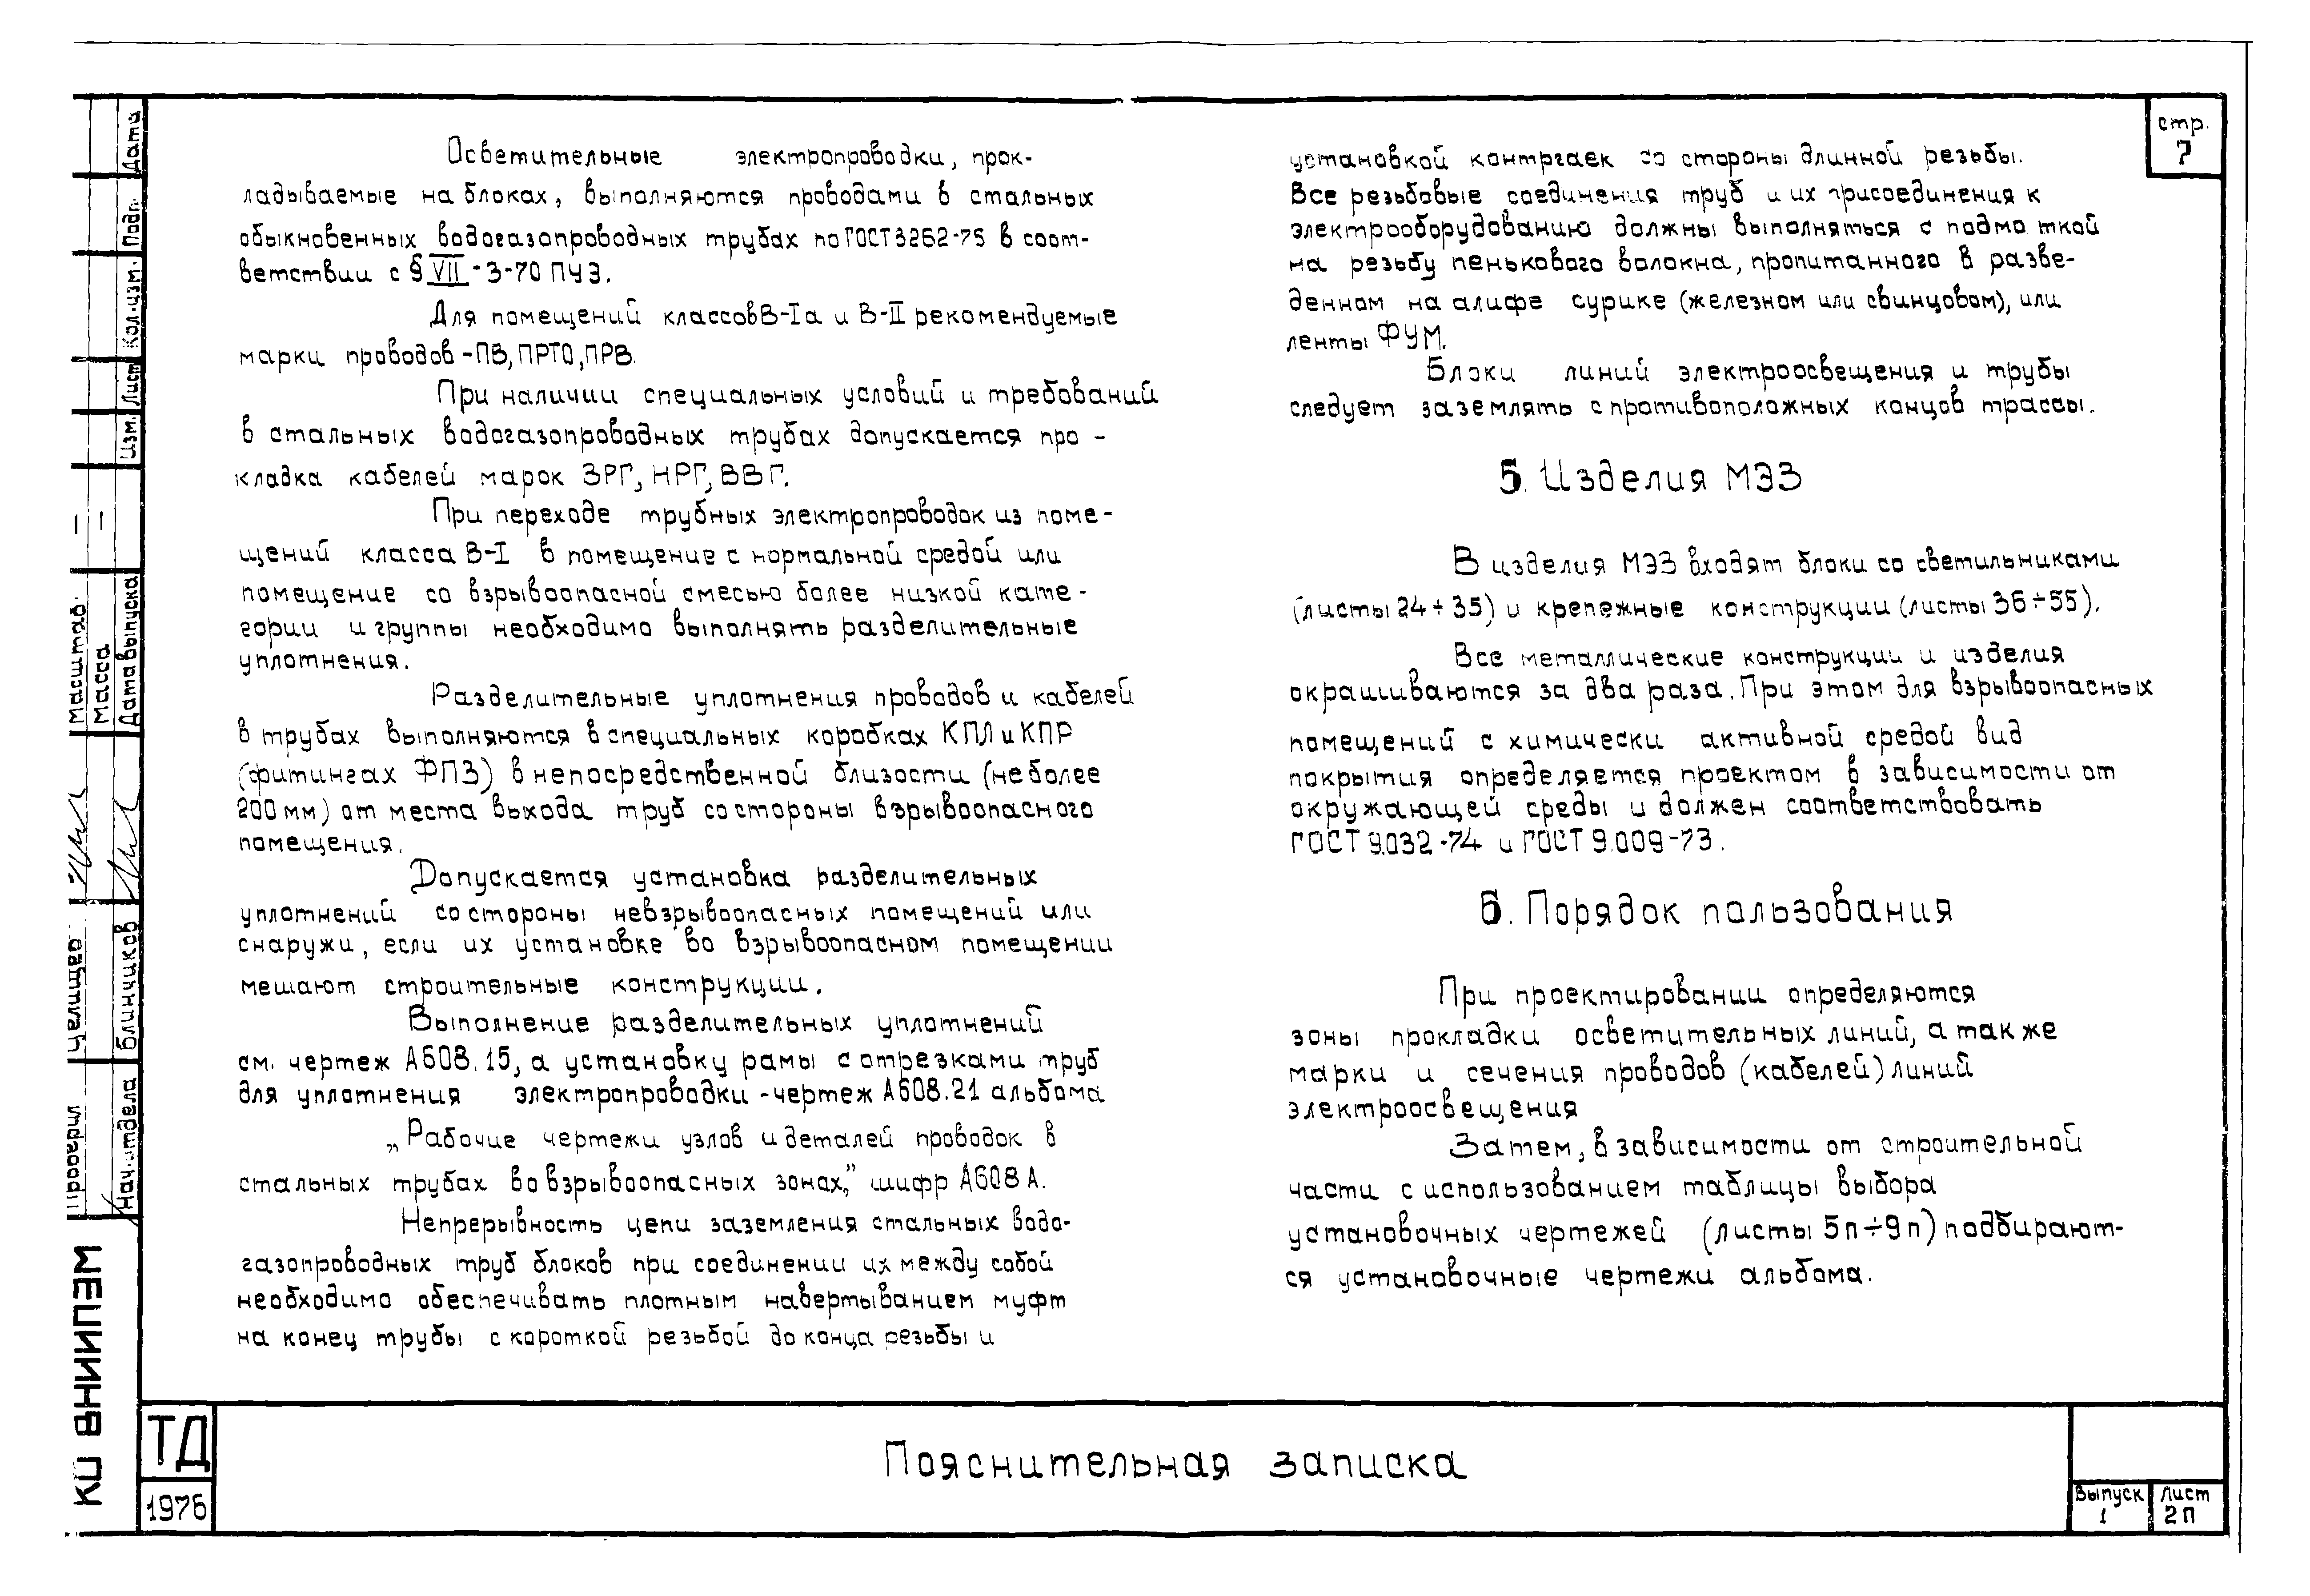 стр.
7
Осветительные электропроводки, прок-
ладываемые на блоках, выполняются проводами в стальных
обыкновенных водогазопроводных трубах по ГОСТ 3262-75 в соот-
ветствии с § VII-3-70 ПУЭ.
Для помещений классов В-Iа и В-II рекомендуемые
марки проводов - ПВ, ПРТО, ПРВ.
При наличии специальных условий и требований
в стальных водогазопроводных трубах допускается про -
кладка кабелей марок ЗРГ, НРГ, ВВГ.
При переходе трубных электропроводок из поме-
щений класса В-I в помещение с нормальной средой или
помещение со взрывоопасной смесью более низкой кате -
гории и группы необходимо выполнять разделительные
уплотнения.
Разделительные уплотнения проводов и кабелей
в трубах выполняются в специальных коробках КПЛ и КПР
(фитингах ФПЗ) в непосредственной близости (не более
200 мм) от места выхода труб со стороны взрывоопасного
помещения.
Допускается установка разделительных
уплотнений со стороны невзрывоопасных помещений или
снаружи, если их установке во взрывоопасном помещении
мешают строительные конструкции.
Выполнение разделительных уплотнений
см. чертеж А608.15, а установку рамы с отрезками труб
для уплотнения электропроводки - чертеж А608.21 альбома
„Рабочие чертежи узлов и деталей проводок в
стальных трубах во взрывоопасных зонах,” шифр А608А.
Непрерывность цепи заземления стальных водо-
газопроводных труб блоков при соединении их между собой
необходимо обеспечивать плотным навертыванием муфт
на конец трубы с короткой резьбой до конца резьбы и
установкой контргаек со стороны длинной резьбы.
Все резьбовые соединения труб и их присоединения к
электрооборудованию должны выполняться с подмоткой
на резьбу пенькового волокна, пропитанного в разве-
денном на алифе сурике (железном или свинцовом), или
ленты ФУМ.
Блоки линий электроосвещения и трубы
следует заземлять с противоположных концов трассы.
5. Изделия МЭЗ
В изделия МЭЗ входят блоки со светильниками
(листы 24÷35) и крепежные конструкции (листы 36÷55).
Все металлические конструкции и изделия
окрашиваются за два раза. При этом для взрывоопасных
помещений с химически активной средой вид
покрытия определяется проектом в зависимости от
окружающей среды и должен соответствовать
ГОСТ 9.032-74 и ГОСТ 9.009-73.
6. Порядок пользования
При проектировании определяются
зоны прокладки осветительных линий, а также
марки и сечения проводов (кабелей) линий
электроосвещения
Затем, в зависимости от строительной
части с использованием таблицы выбора
установочных чертежей (листы 5п÷9п) подбирают-
ся установочные чертежи альбома.
Изм. Лист Кол-изм. Подп. Дата
Масштаб. —
Масса —
Дата выпуска
Нач. отдела Блинчиков
КП ВНИИПЕМ
ТД
1976
Пояснительная записка
Выпуск
1
Лист
2П